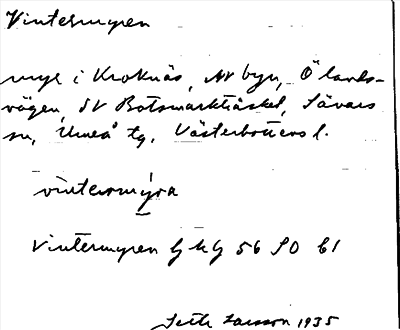 Vintermyren
myr i Kroknäs, NV byn, Ölands-
vägen, SV Botsmarkträsket, Sävars
sn, Umeå tg, Västerbottens l.
vintermýra
Vintermyren GKG 56 SO 61
Seth Larsson 1935